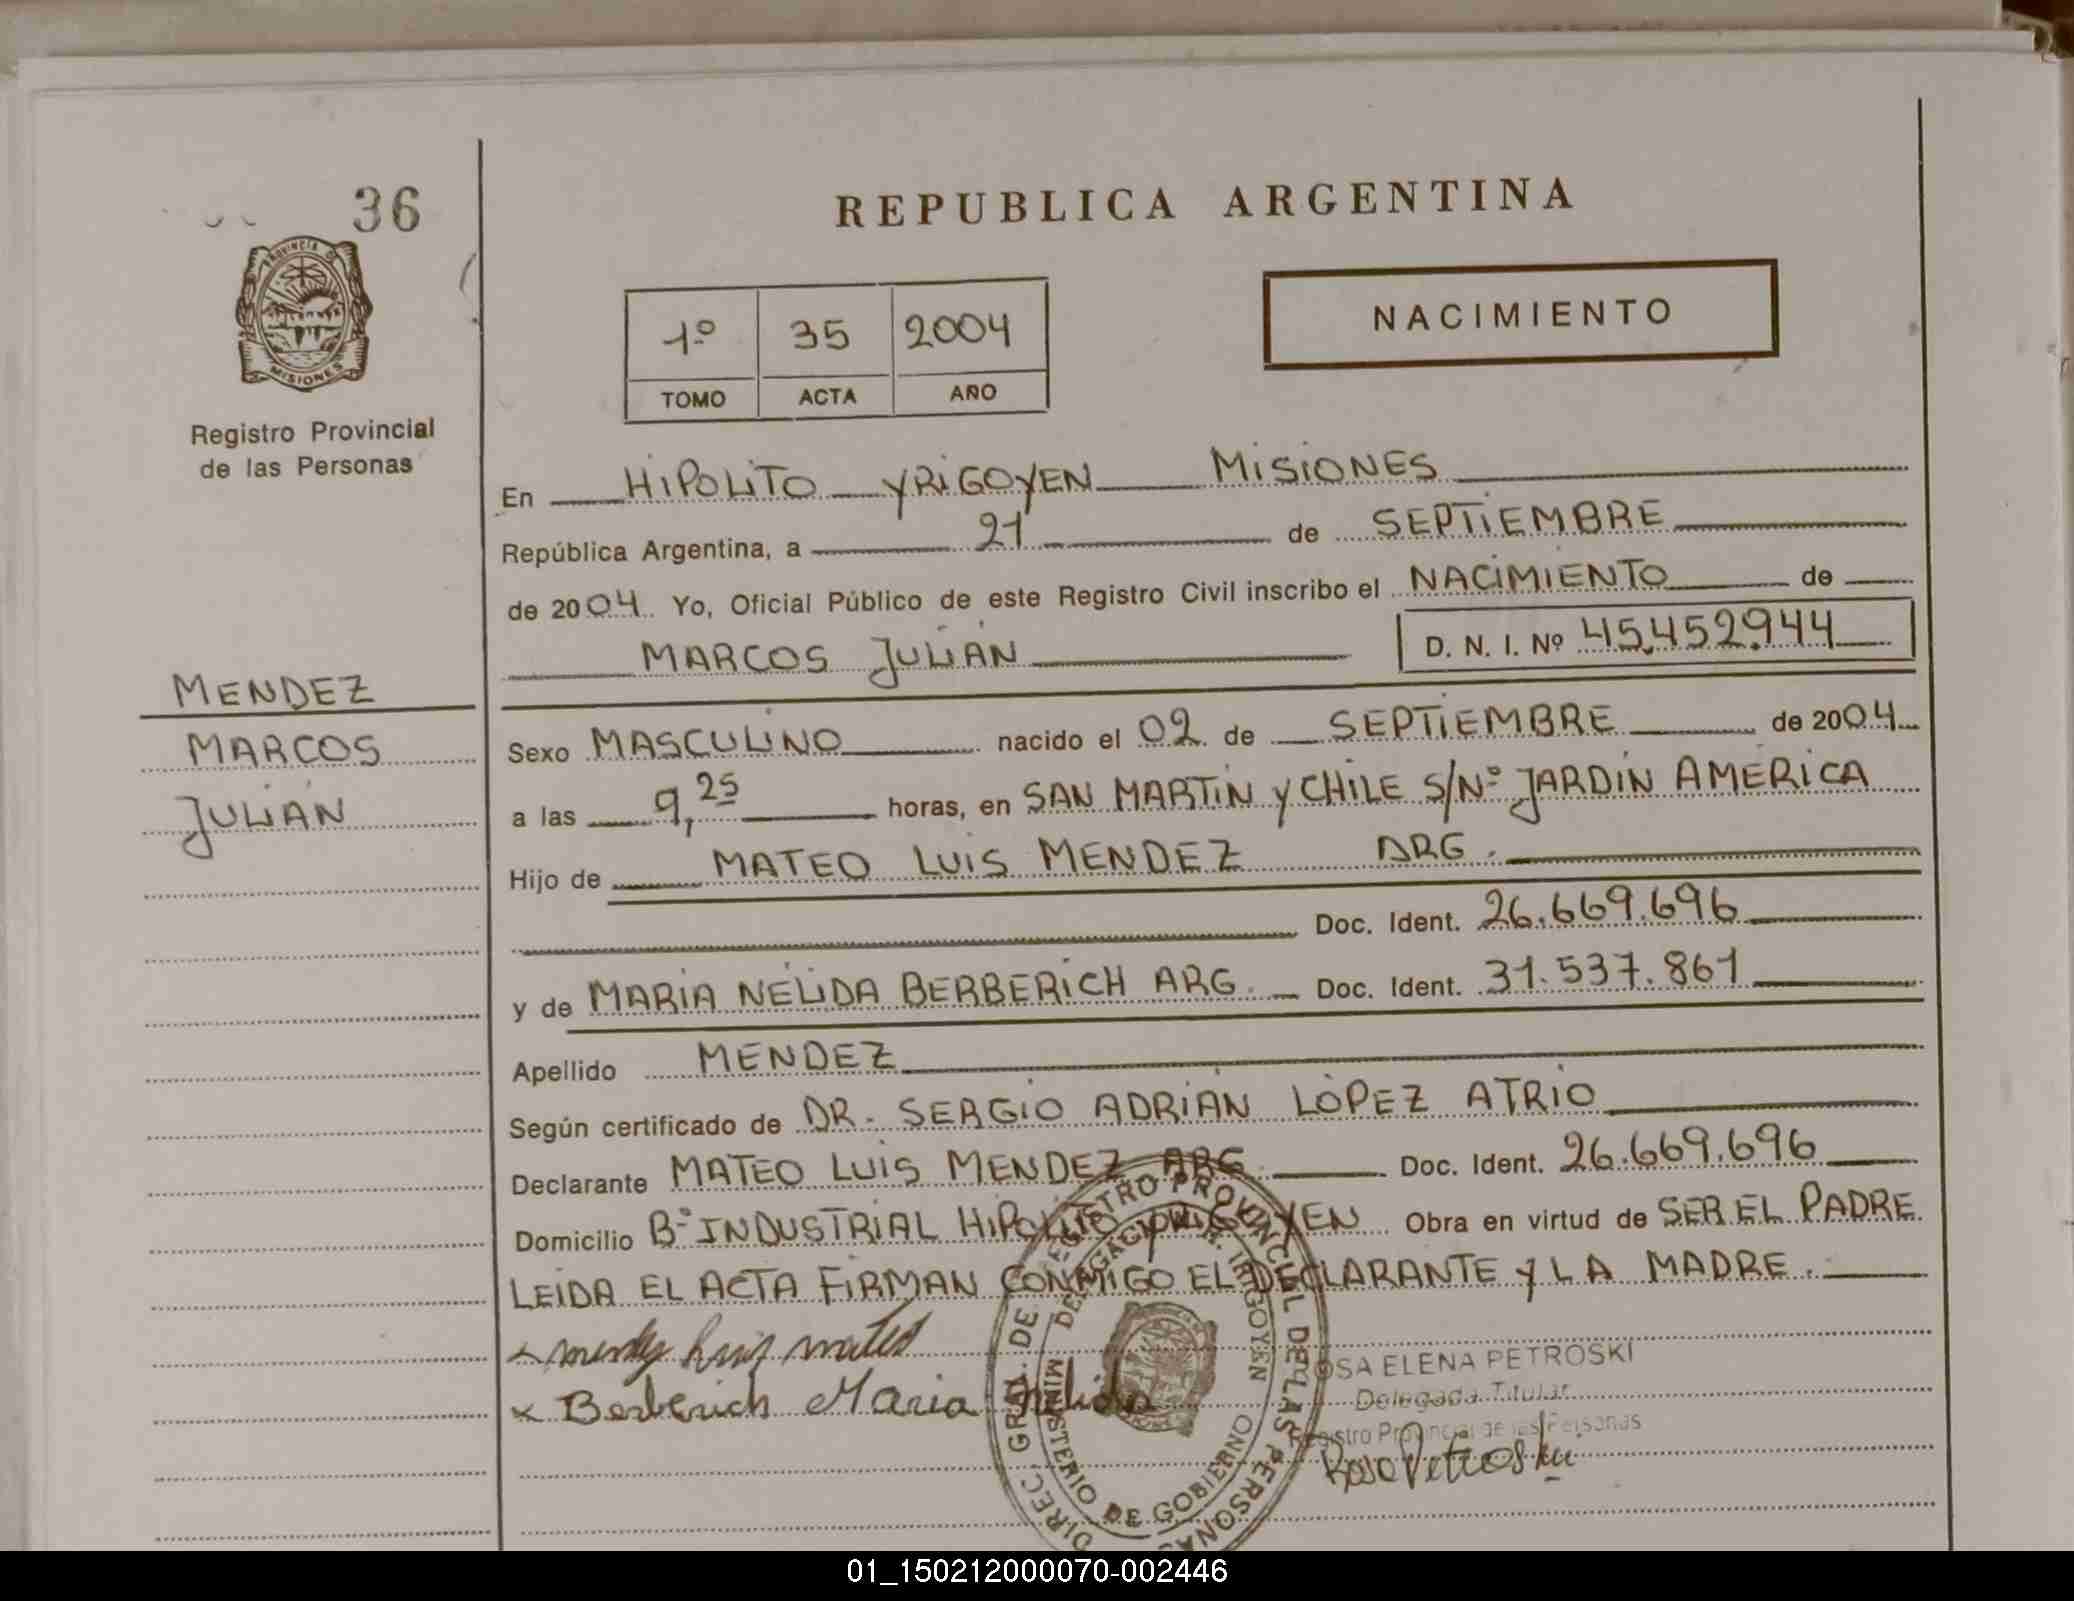 36
PROVINCIA D
MISIONES
Registro Provincial
de las Personas
MENDEZ
MARCOS
JULIÁN
REPUBLICA ARGENTINA
1º 35 2004
TOMO ACTA AÑO
NACIMIENTO
En HIPOLITO YRIGOYEN MISIONES
República Argentina, a 21 de SEPTIEMBRE
de 2004 Yo, Oficial Público de este Registro Civil inscribo el NACIMIENTO de
MARCOS JULIÁN D. N. I. Nº 45.452.944
Sexo MASCULINO nacido el 02 de SEPTIEMBRE de 2004
a las 9,25 horas, en SAN MARTÍN Y CHILE S/Nº JARDÍN AMÉRICA
Hijo de MATEO LUIS MENDEZ ARG.
Doc. Ident. 26.669.696
y de MARÍA NÉLIDA BERBERICH ARG. Doc. Ident. 31.537.861
Apellido MENDEZ
Según certificado de DR. SERGIO ADRIÁN LÓPEZ ATRIO
Declarante MATEO LUIS MENDEZ ARG. Doc. Ident. 26.669.696
Domicilio Bº INDUSTRIAL HIPOLITO YRIGOYEN Obra en virtud de SER EL PADRE
LEIDA EL ACTA FIRMAN CONMIGO EL DECLARANTE Y LA MADRE.
x mendez luis mateo
x Berberich Maria Nelida
DIREC. GRAL. DE REGISTRO PROVINCIAL DE LAS PERSONAS
MINISTERIO DE GOBIERNO
DELEGACION H. IRIGOYEN
OSA ELENA PETROSKI
Delegada Titular
Registro Provincial de las Personas
Rosa Petroski
01_150212000070-002446